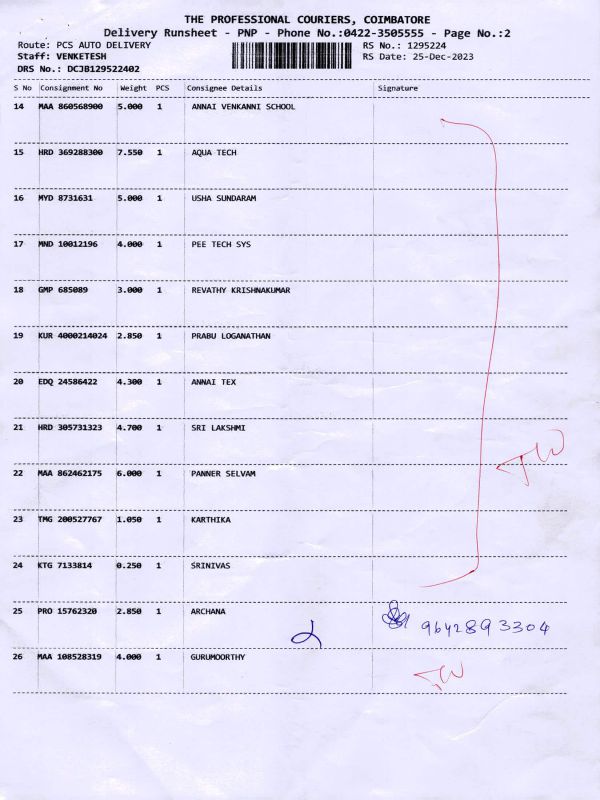 THE PROFESSIONAL COURIERS, COIMBATORE
Delivery Runsheet - PNP - Phone No.:0422-3505555 - Page No.:2
Route: PCS AUTO DELIVERY RS No.: 1295224
Staff: VENKETESH RS Date: 25-Dec-2023
DRS No.: DCJB129522402
S No Consignment No Weight PCS Consignee Details Signature
14 MAA 860568900 5.000 1 ANNAI VENKANNI SCHOOL
15 HRD 369288300 7.550 1 AQUA TECH
16 MYD 8731631 5.000 1 USHA SUNDARAM
17 MND 10012196 4.000 1 PEE TECH SYS
18 GMP 685089 3.000 1 REVATHY KRISHNAKUMAR
19 KUR 4000214024 2.850 1 PRABU LOGANATHAN
20 EDQ 24586422 4.300 1 ANNAI TEX
21 HRD 305731323 4.700 1 SRI LAKSHMI
22 MAA 862462175 6.000 1 PANNER SELVAM
23 TMG 200527767 1.050 1 KARTHIKA
24 KTG 7133814 0.250 1 SRINIVAS
25 PRO 15762320 2.850 1 ARCHANA 9642893304
26 MAA 108528319 4.000 1 GURUMOORTHY